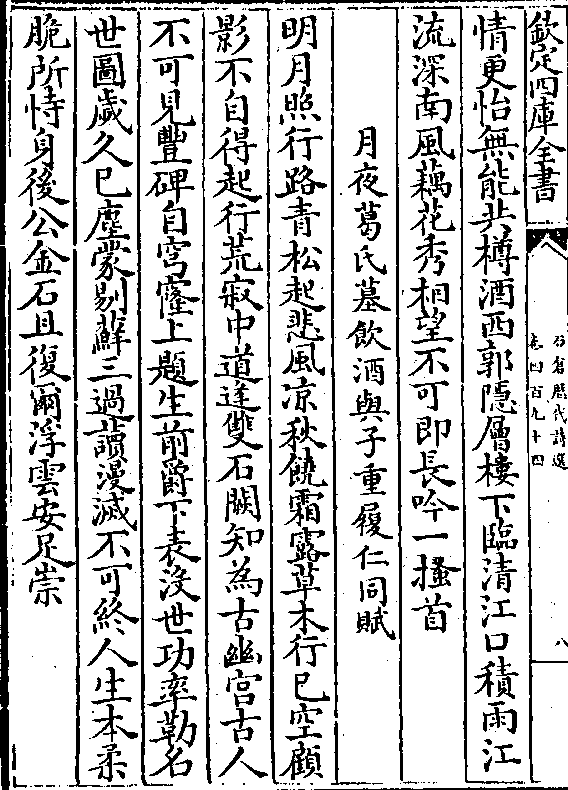 欽定四庫全書
石倉歷代詩選
卷四百九十四
八
情更怡無能共樽酒西郭隱層樓下臨清江口積雨江
流深南風藕花秀相望不可即長吟一搔首
月夜葛氏墓飲酒與子重履仁同賦
明月照行路青松起悲風凉秋饒霜露草木行已空顧
影不自得起行荒寂中道逢雙石闕知為古幽宫古人
不可見豐碑自穹窿上題生前爵下表沒世功率勒名
世圖歲久已塵蒙剔蘚三過讀漫滅不可終人生本柔
脆所恃身後公金石且復爾浮雲安足崇